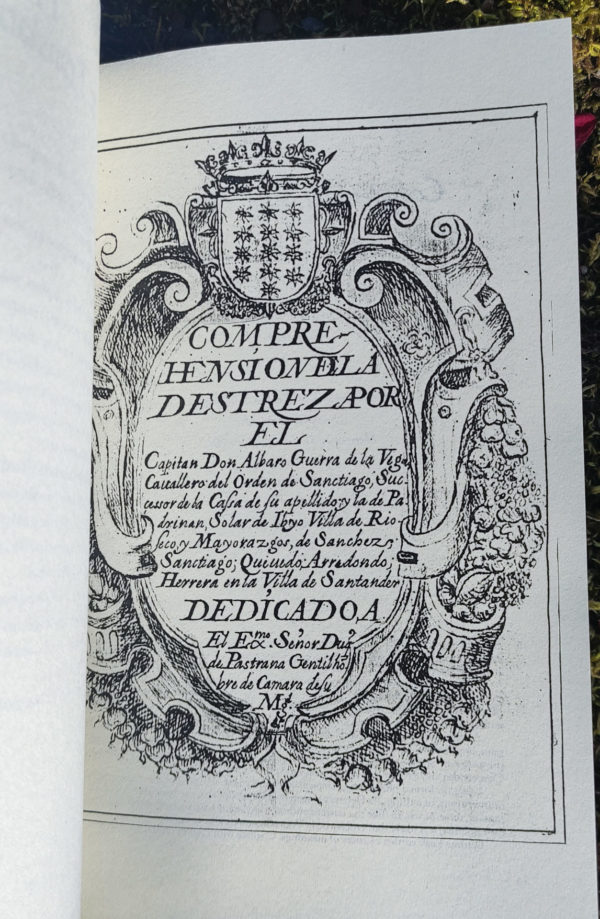 COMPRE-
HENSION DE LA
DESTREZA POR
EL
Capitan Don Albaro Guerra de la Vega
Cauallero del Orden de Sanctiago, Suc-
cessor de la Casa de su apellido, y la de Pa-
drinan, Solar de Ibyo Villa de Rio-
seco, y Mayorazgos, de Sanchez,
Sanctiago; Quiuedo; Arredondo,
Herrera en la Villa de Santander
DEDICADO, A
El Exmo. Señor. Duq
de Pastrana Gentilho-
bre de Camara de su
Md.